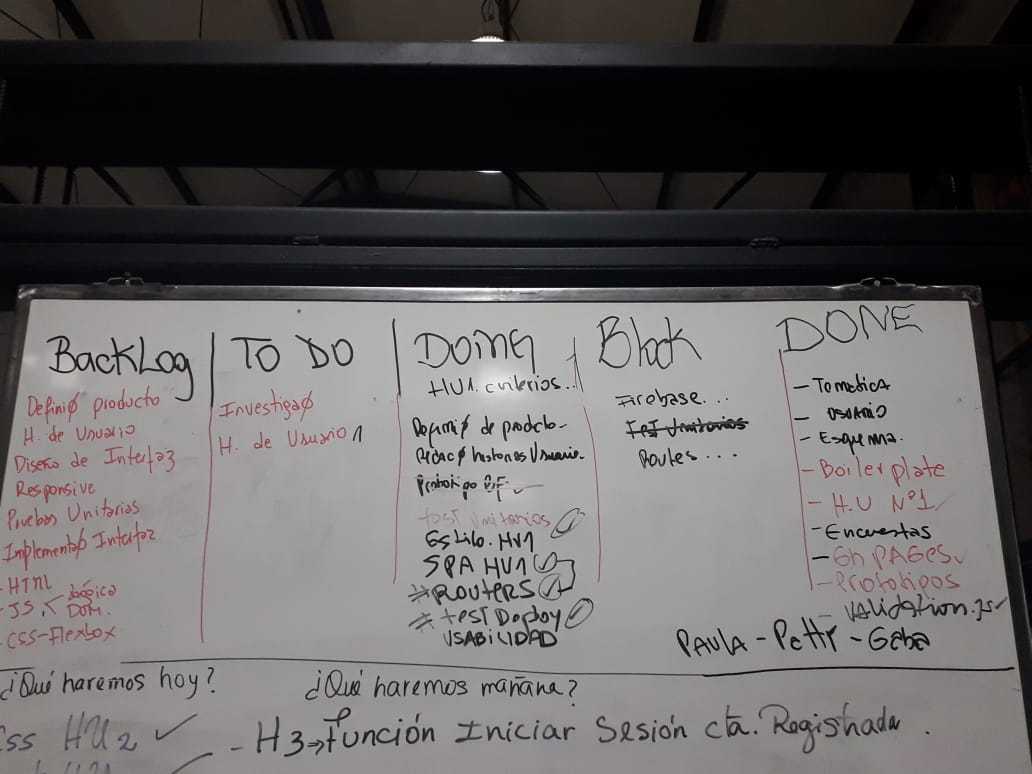 BackLog
Definiø producto
H. de Usuario
Diseño de Interfaz
Responsive
Pruebas Unitarias
Implementaø Interfaz
- HTML
- JS. Lógica
DOM.
- CSS-Flexbox
TO DO
Investigaø
H. de Usuario 1
DOING
HU1. criterios..
Definiø de prodcto-
Redacø historias Usuario.
Prototipo BF.
test Unitarios
Estilo. HU1
SPA HU1
* ROUTERS
* test Deploy
USABILIDAD
Block
Firebase...
Test Unitarios
Routes...
DONE
- Tematica
- USUARIO
- Esquema.
- Boiler plate
- H.U Nº1
- Encuestas
- Gh PAGES.
- Prototipos
- VALIdation.js
PAULA - Petty - Gaba
¿Qué haremos hoy?
Css HU2
¿Qué haremos mañana?
- H3→Función Iniciar Sesión cta. Registrada.